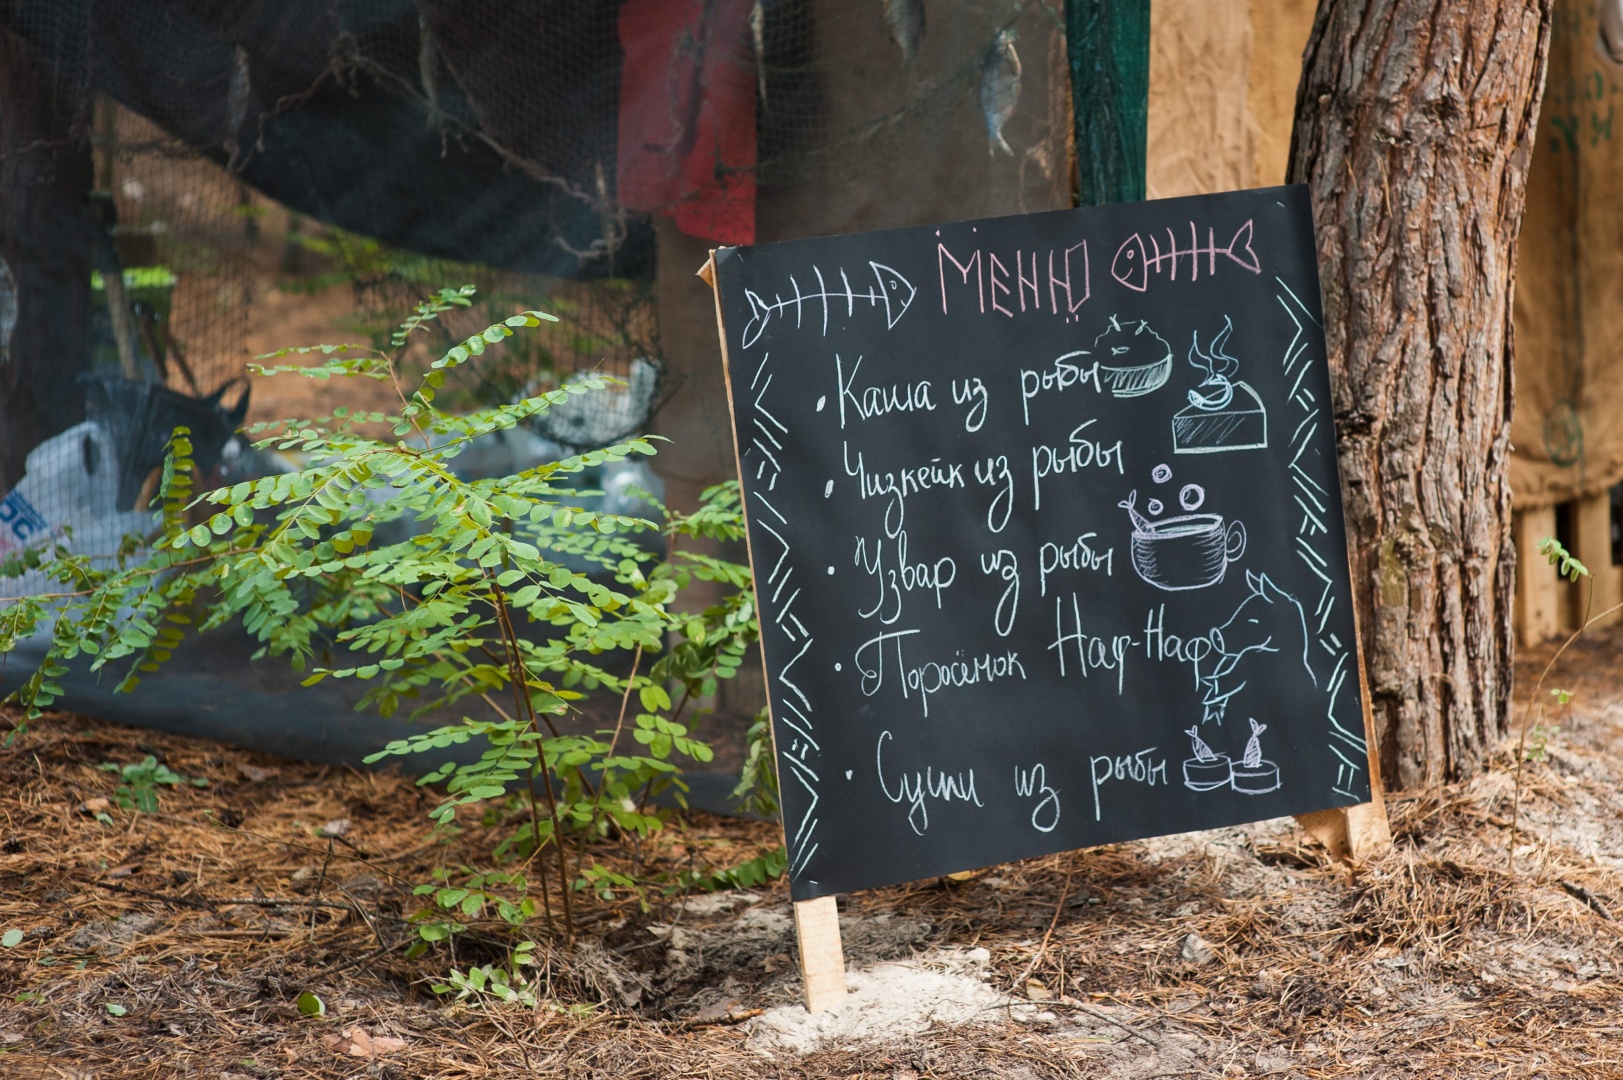 Меню
Каша из рыбы
Чизкейк из рыбы
Узвар из рыбы
Поросёнок Наф-Наф
Суши из рыбы